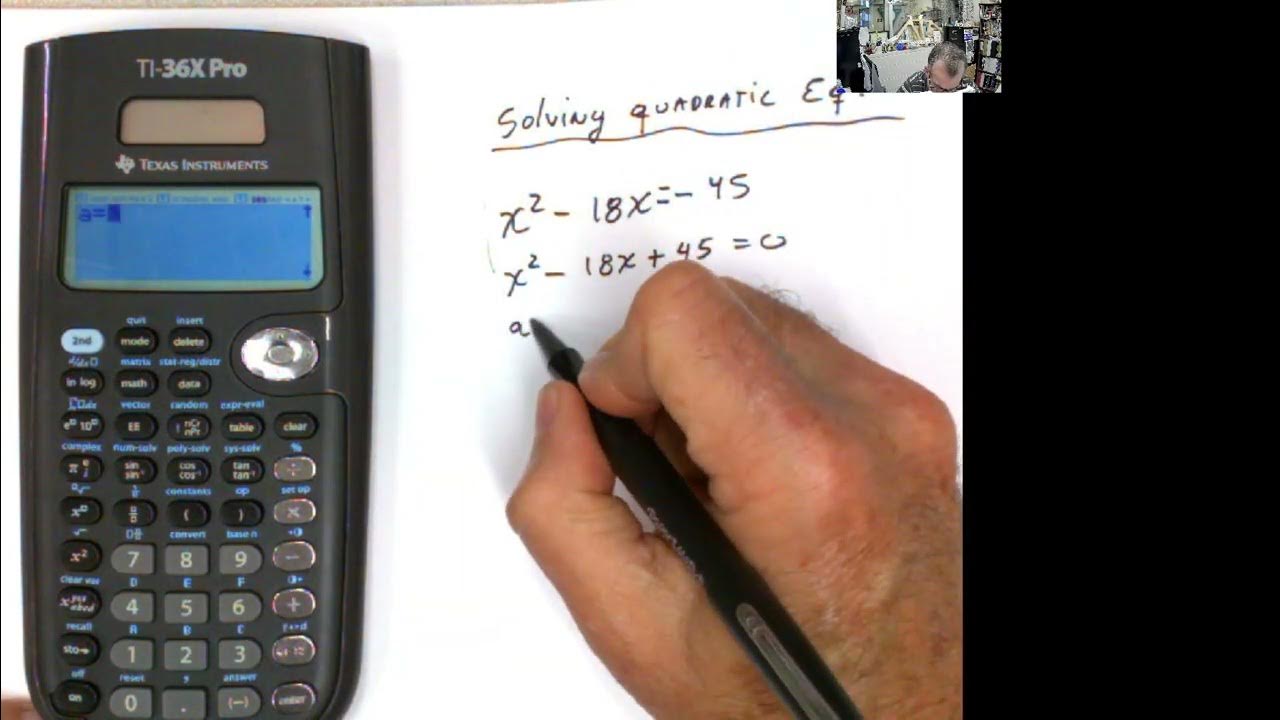 TI-36X Pro
TEXAS INSTRUMENTS
a=
quit insert
2nd mode delete
matrix stat-reg/distr
ln log math data
vector random expr-eval
EE nCr nPr table clear
complex num-solv poly-solv sys-solv %
π sin sin⁻¹ cos cos⁻¹ tan tan⁻¹ ÷
constants op set op
( ) ×
convert base n
x² 7 8 9 −
clear var D E F
4 5 6 +
recall A B C
sto→ 1 2 3
off reset , answer
on 0 . (−) enter
Solving quadratic Eq.
x² − 18x = − 45
x² − 18x + 45 = 0
a